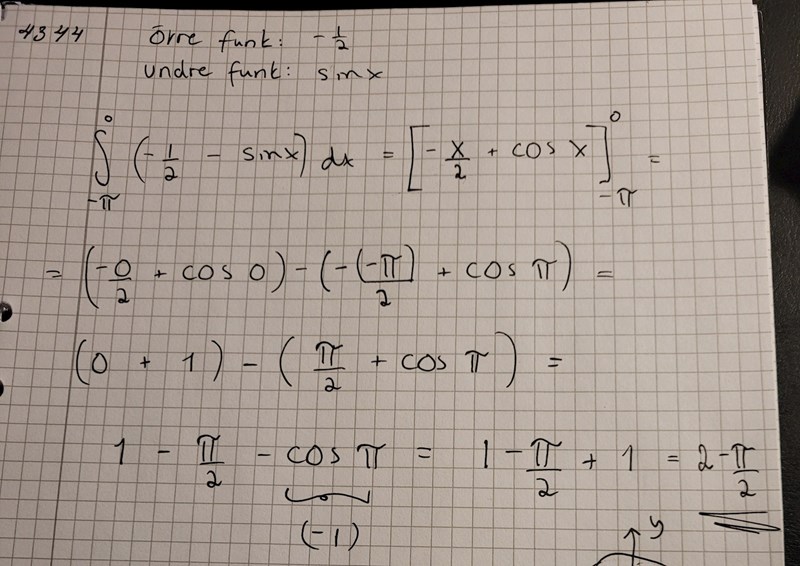 4344 Övre funk: -1/2
undre funk: sinx
∫_{-π}^{0} (-1/2 - sinx) dx = [-x/2 + cos x]_{-π}^{0} =
= (-0/2 + cos 0) - (-(-π)/2 + cos π) =
(0 + 1) - (π/2 + cos π) =
1 - π/2 - cos π = 1 - π/2 + 1 = 2 - π/2
(-1)
y